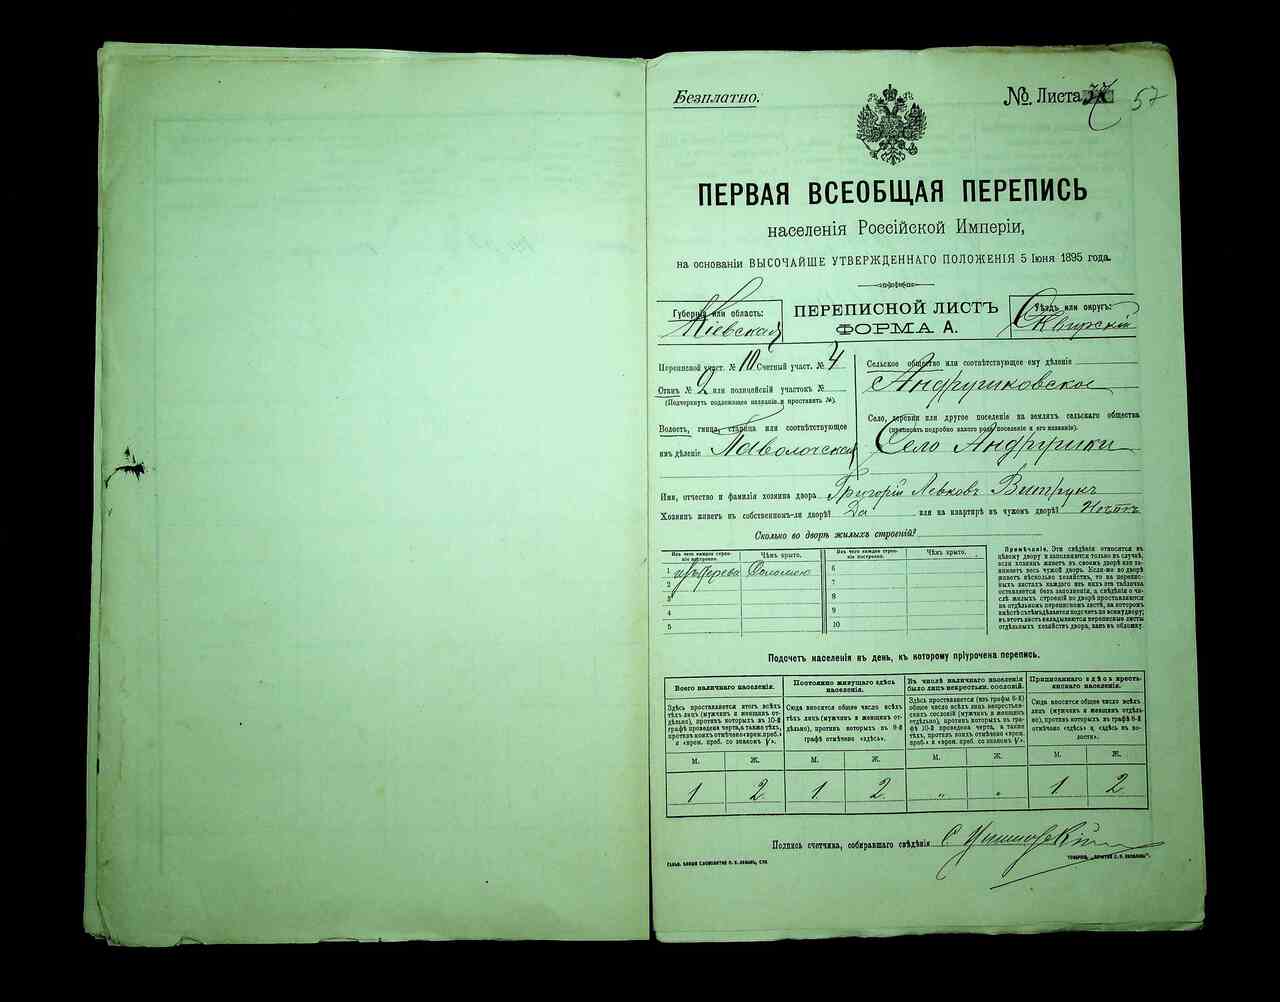 Безплатно.
№ Листа 57
ПЕРВАЯ ВСЕОБЩАЯ ПЕРЕПИСЬ
населенія Россійской Имперіи,
на основаніи ВЫСОЧАЙШЕ УТВЕРЖДЕННАГО ПОЛОЖЕНІЯ 5 Іюня 1895 года.
Губернія или область:
Кіевская
ПЕРЕПИСНОЙ ЛИСТЪ
ФОРМА А.
Уѣздъ или округъ:
Сквирскій
Переписной участ. № 10 Счетный участ. № 4
Станъ № 2 или полицейскій участокъ №
(Подчеркнуть подлежащее названіе и проставить №).
Волость, гмина, станица или соотвѣтствующее
имъ дѣленіе Паволочская
Сельское общество или соотвѣтствующее ему дѣленіе
Андрушковское
Село, деревня или другое поселеніе на земляхъ сельскаго общества
(прописать подробно какого рода поселеніе и его названіе).
Село Андрушки
Имя, отчество и фамилія хозяина двора Григорій Левковъ Витрукъ
Хозяинъ живетъ въ собственномъ-ли дворѣ? Да или на квартирѣ въ чужомъ дворѣ?
Сколько во дворѣ жилыхъ строеній?
Изъ чего каждое строеніе построено. Чѣмъ крыто. Изъ чего каждое строеніе построено. Чѣмъ крыто.
1 изъ дерева Соломою 6
2 7
3 8
4 9
5 10
Примѣчаніе. Эти свѣдѣнія относятся къ
цѣлому двору и заполняются только въ случаѣ,
если хозяинъ живетъ въ своемъ дворѣ или занимаетъ
весь чужой дворъ. Если-же во дворѣ
живетъ нѣсколько хозяйствъ, то на переписныхъ
листахъ каждаго изъ нихъ эта табличка
оставляется безъ заполненія, а свѣдѣнія о числѣ
жилыхъ строеній во дворѣ проставляются
на отдѣльномъ переписномъ листѣ, на которомъ
вмѣстѣ съ тѣмъ дѣлается подсчетъ по всему двору;
въ этотъ листъ вкладываются переписные листы
отдѣльныхъ хозяйствъ двора, какъ въ обложку.
Подсчетъ населенія въ день, къ которому пріурочена перепись.
Всего наличнаго населенія.
Здѣсь проставляется итогъ всѣхъ
тѣхъ лицъ (мужчинъ и женщинъ отдѣльно),
противъ которыхъ въ 10-й
графѣ проведена черта, а также тѣхъ,
противъ коихъ отмѣчено «врем. преб.»
и «врем. преб. со знакомъ V».
Постоянно живущаго здѣсь населенія.
Сюда вносится общее число всѣхъ
тѣхъ лицъ (мужчинъ и женщинъ отдѣльно),
противъ которыхъ въ 9-й
графѣ отмѣчено «здѣсь».
Въ числѣ наличнаго населенія
было лицъ некрестьян. сословій.
Здѣсь проставляется (изъ графы 6-й)
общее число всѣхъ лицъ некрестьянскихъ
сословій (мужчинъ и женщинъ
отдѣльно), противъ которыхъ въ графѣ
10-й отмѣчена черта, а также
противъ которыхъ отмѣчено «врем.
преб.» и «врем. преб. со знакомъ V».
Приписаннаго здѣсь крестьянскаго населенія.
Сюда вносится общее число всѣхъ
лицъ (мужчинъ и женщинъ отдѣльно),
противъ которыхъ въ графѣ 8-й
отмѣчено «здѣсь» и «здѣсь въ волости».
М. Ж. М. Ж. М. Ж. М. Ж.
1 2 1 2 „ „ 1 2
Подпись счетчика, собиравшаго свѣдѣнія